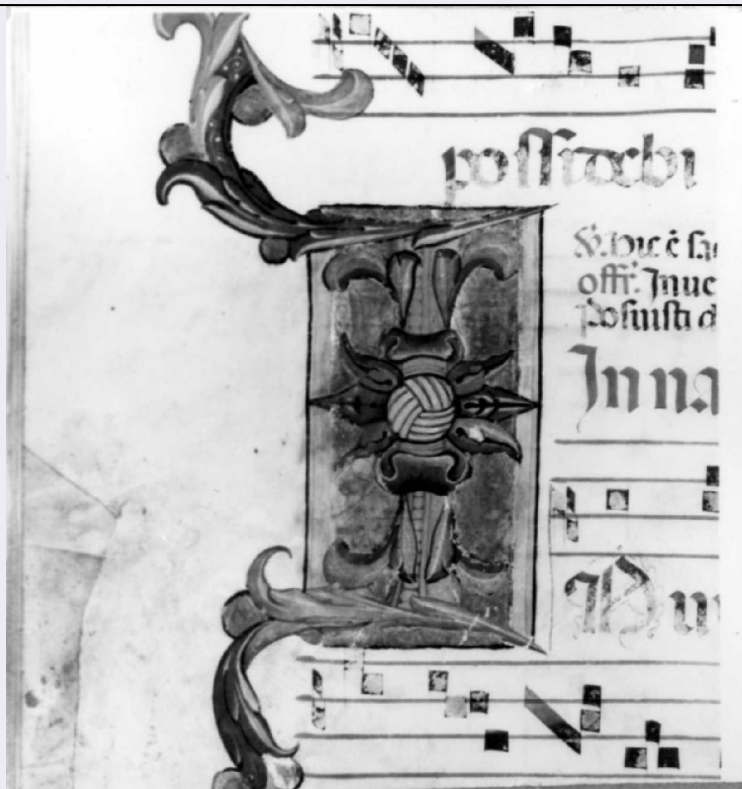 possidebi
V. hic ē sa
offr̄. Inue
Posuisti d
In na